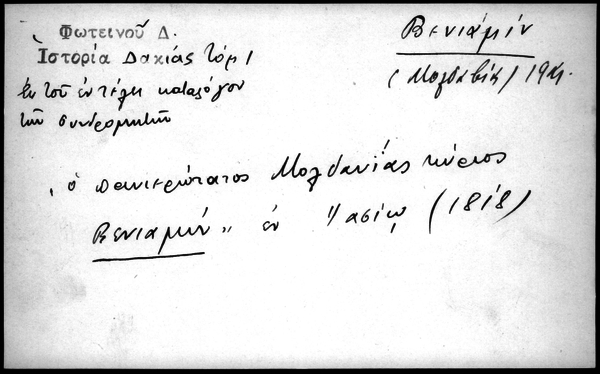 Φωτεινοῦ Δ.
Ἱστορία Δακίας τόμ 1
ἐκ τοῦ ἐν τέλει καταλόγου
τῶν συνδρομητῶν
Βενιαμίν
(Μολδαβίας) 19ος.
„ ὁ πανιερώτατος Μολδανίας κύριος
Βενιαμίν „ ἐν Ἰασίῳ (1818)